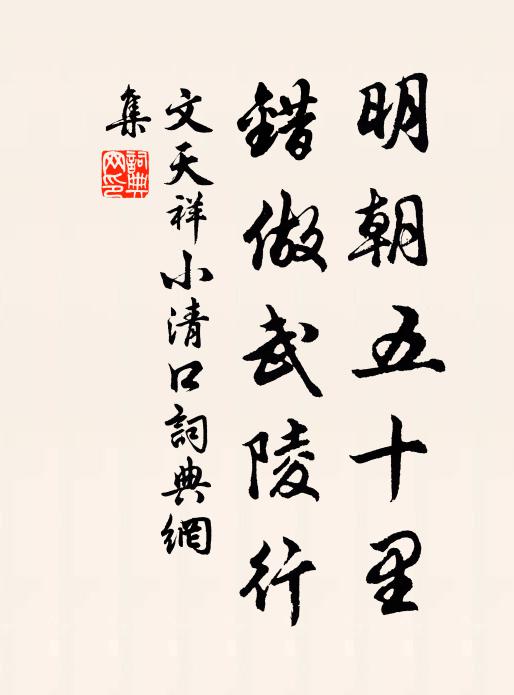 明朝五十里
錯做武陵行
文天祥小清口詞典網
集
詞典
网印